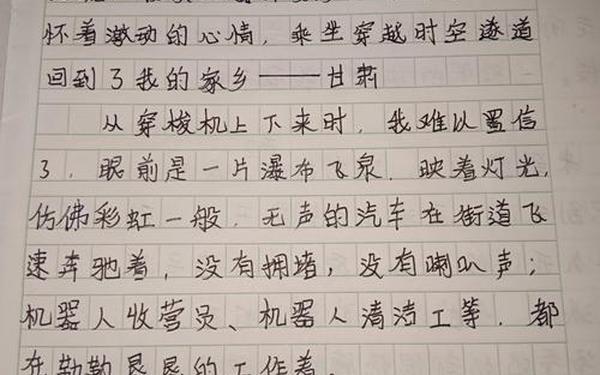 怀着激动的心情，乘坐穿越时空遂道
回到了我的家乡——甘肃
从穿梭机上下来时，我难以置信
了，眼前是一片瀑布飞泉．映着灯光，
仿佛彩虹一般．无声的汽车在街道飞
速奔驰着，没有拥堵，没有喇叭声；
机器人收营员、机器人清洁工等．都
在勤勤恳恳的工作着．